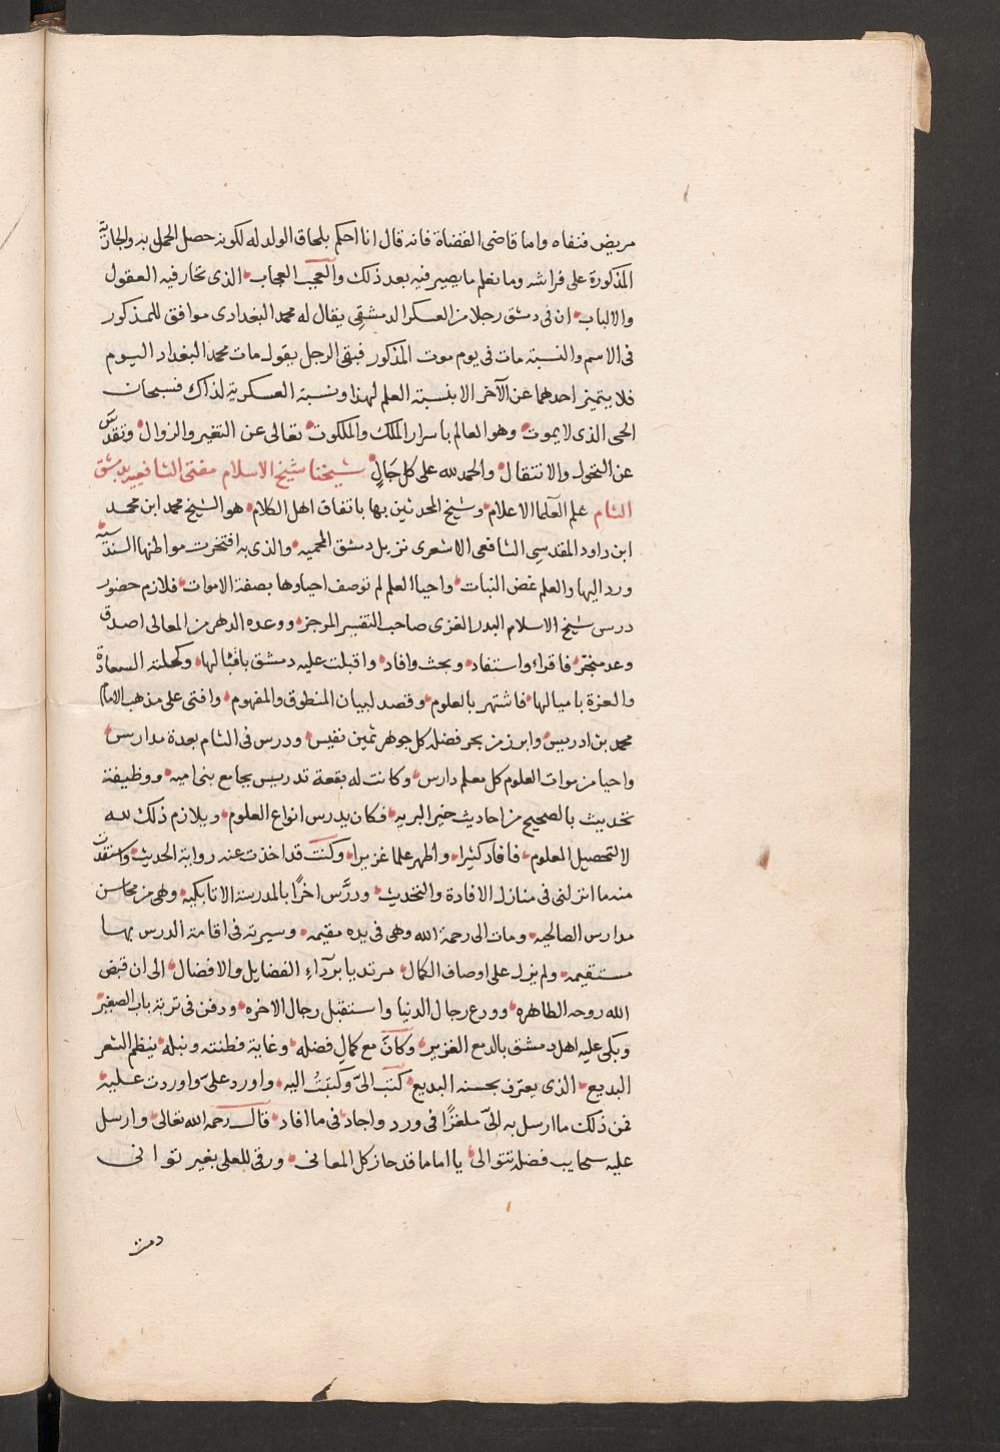 مريض فنفاه واما قاضى القضاة فانه قال انا احكم بلحاق الولد له لكونه حصل الحمل به والجارية
المذكورة على فراشه وما نعلم ما يصير فيه بعد ذلك والعجب العجاب الذى تحار فيه العقول
والالباب ان فى دمشق رجلا من العسكر الدمشقى يقال له محمد البغدادى موافق للمذكور
فى الاسم والنسبة مات فى يوم موت المذكور فبقى الرجل يقول مات محمد البغداد اليوم
فلا يتميز احدهما عن الآخر الا بنسبة العلم لهذا ونسبة العسكرية لذاك فسبحان
الحى الذى لا يموت وهو العالم باسرار الملك والملكوت تعالى عن التغير والزوال وتقدس
عن التحول والانتقال والحمد لله على كل حال شيخنا شيخ الاسلام مفتى الشافعيه بدمشق
الشام علم العلما الاعلام وشيخ المحدثين بها باتفاق اهل الكلام هو الشيخ محمد ابن محمد
ابن داود المقدسى الشافعى الاشعرى نزيل دمشق المحميه والذى به افتخرت مواطنها السندسية
ورد اليها والعلم غض النبات واحياا لعلم لم توصف احياوها بصفة الاموات فلازم حضور
درس شيخ الاسلام البدر الغزى صاحب التفسير الموجز ووعده الدهر من المعالى اصدق
وعد منجز فاقراء واستفاد وبحث وافاد واقبلت عليه دمشق باقبالها وكحلته السعادة
والعزة باميالها فاشتهر بالعلوم وقصد لبيان المنطوق والمفهوم وافتى على مذهب الامام
محمد بن ادريس وابرز من بحر فضله كل جوهر ثمين نفيس ودرس فى الشام بعدة مدارس
واحيا من موات العلوم كل معلم دارس وكانت له بقعة تدريس بجامع بنى اميه ووظيفة
تحديث بالصحيح من احاديث خير البريه فكان يدرس انواع العلوم ويلازم ذلك لله
لا لتحصيل المعلوم فافاد كثيرا واظهر علما غزيرا وكنت قد اخذت عنه رواية الحديث واستفدت
منه ما انزلنى فى منازل الافادة والتحديث ودرَّس اخرًا بالمدرسة الاتابكيه وهى من محاسن
مدارس الصالحيه ومات الى رحمة الله وهى فى يده مقيمه وسيرته فى اقامة الدرس بها
مستقيمه ولم يزل على اوصاف الكمال مرتديا بردآء الفضايل والافضال الى ان قبض
الله روحه الطاهره وودع رجال الدنيا واستقبل رجال الاخره ودفن فى تربة باب الصغير
وبكى عليه اهل دمشق بالدمع الغزير وكان مع كمال فضله وغاية فطنته ونبله ينظم الشعر
البديع الذى يعترف بحسنه البديع كتب الىّ وكتبتُ اليه واورد علىّ واوردت عليه
فمن ذلك ما ارسل به الىّ ملغزًا فى ورد واجاد فى ما افاد قال رحمه الله تعالى وارسل
عليه سحايب فضله تتوالى يا اماما قد حاز كل المعانى ورقى للعلى بغير توانى